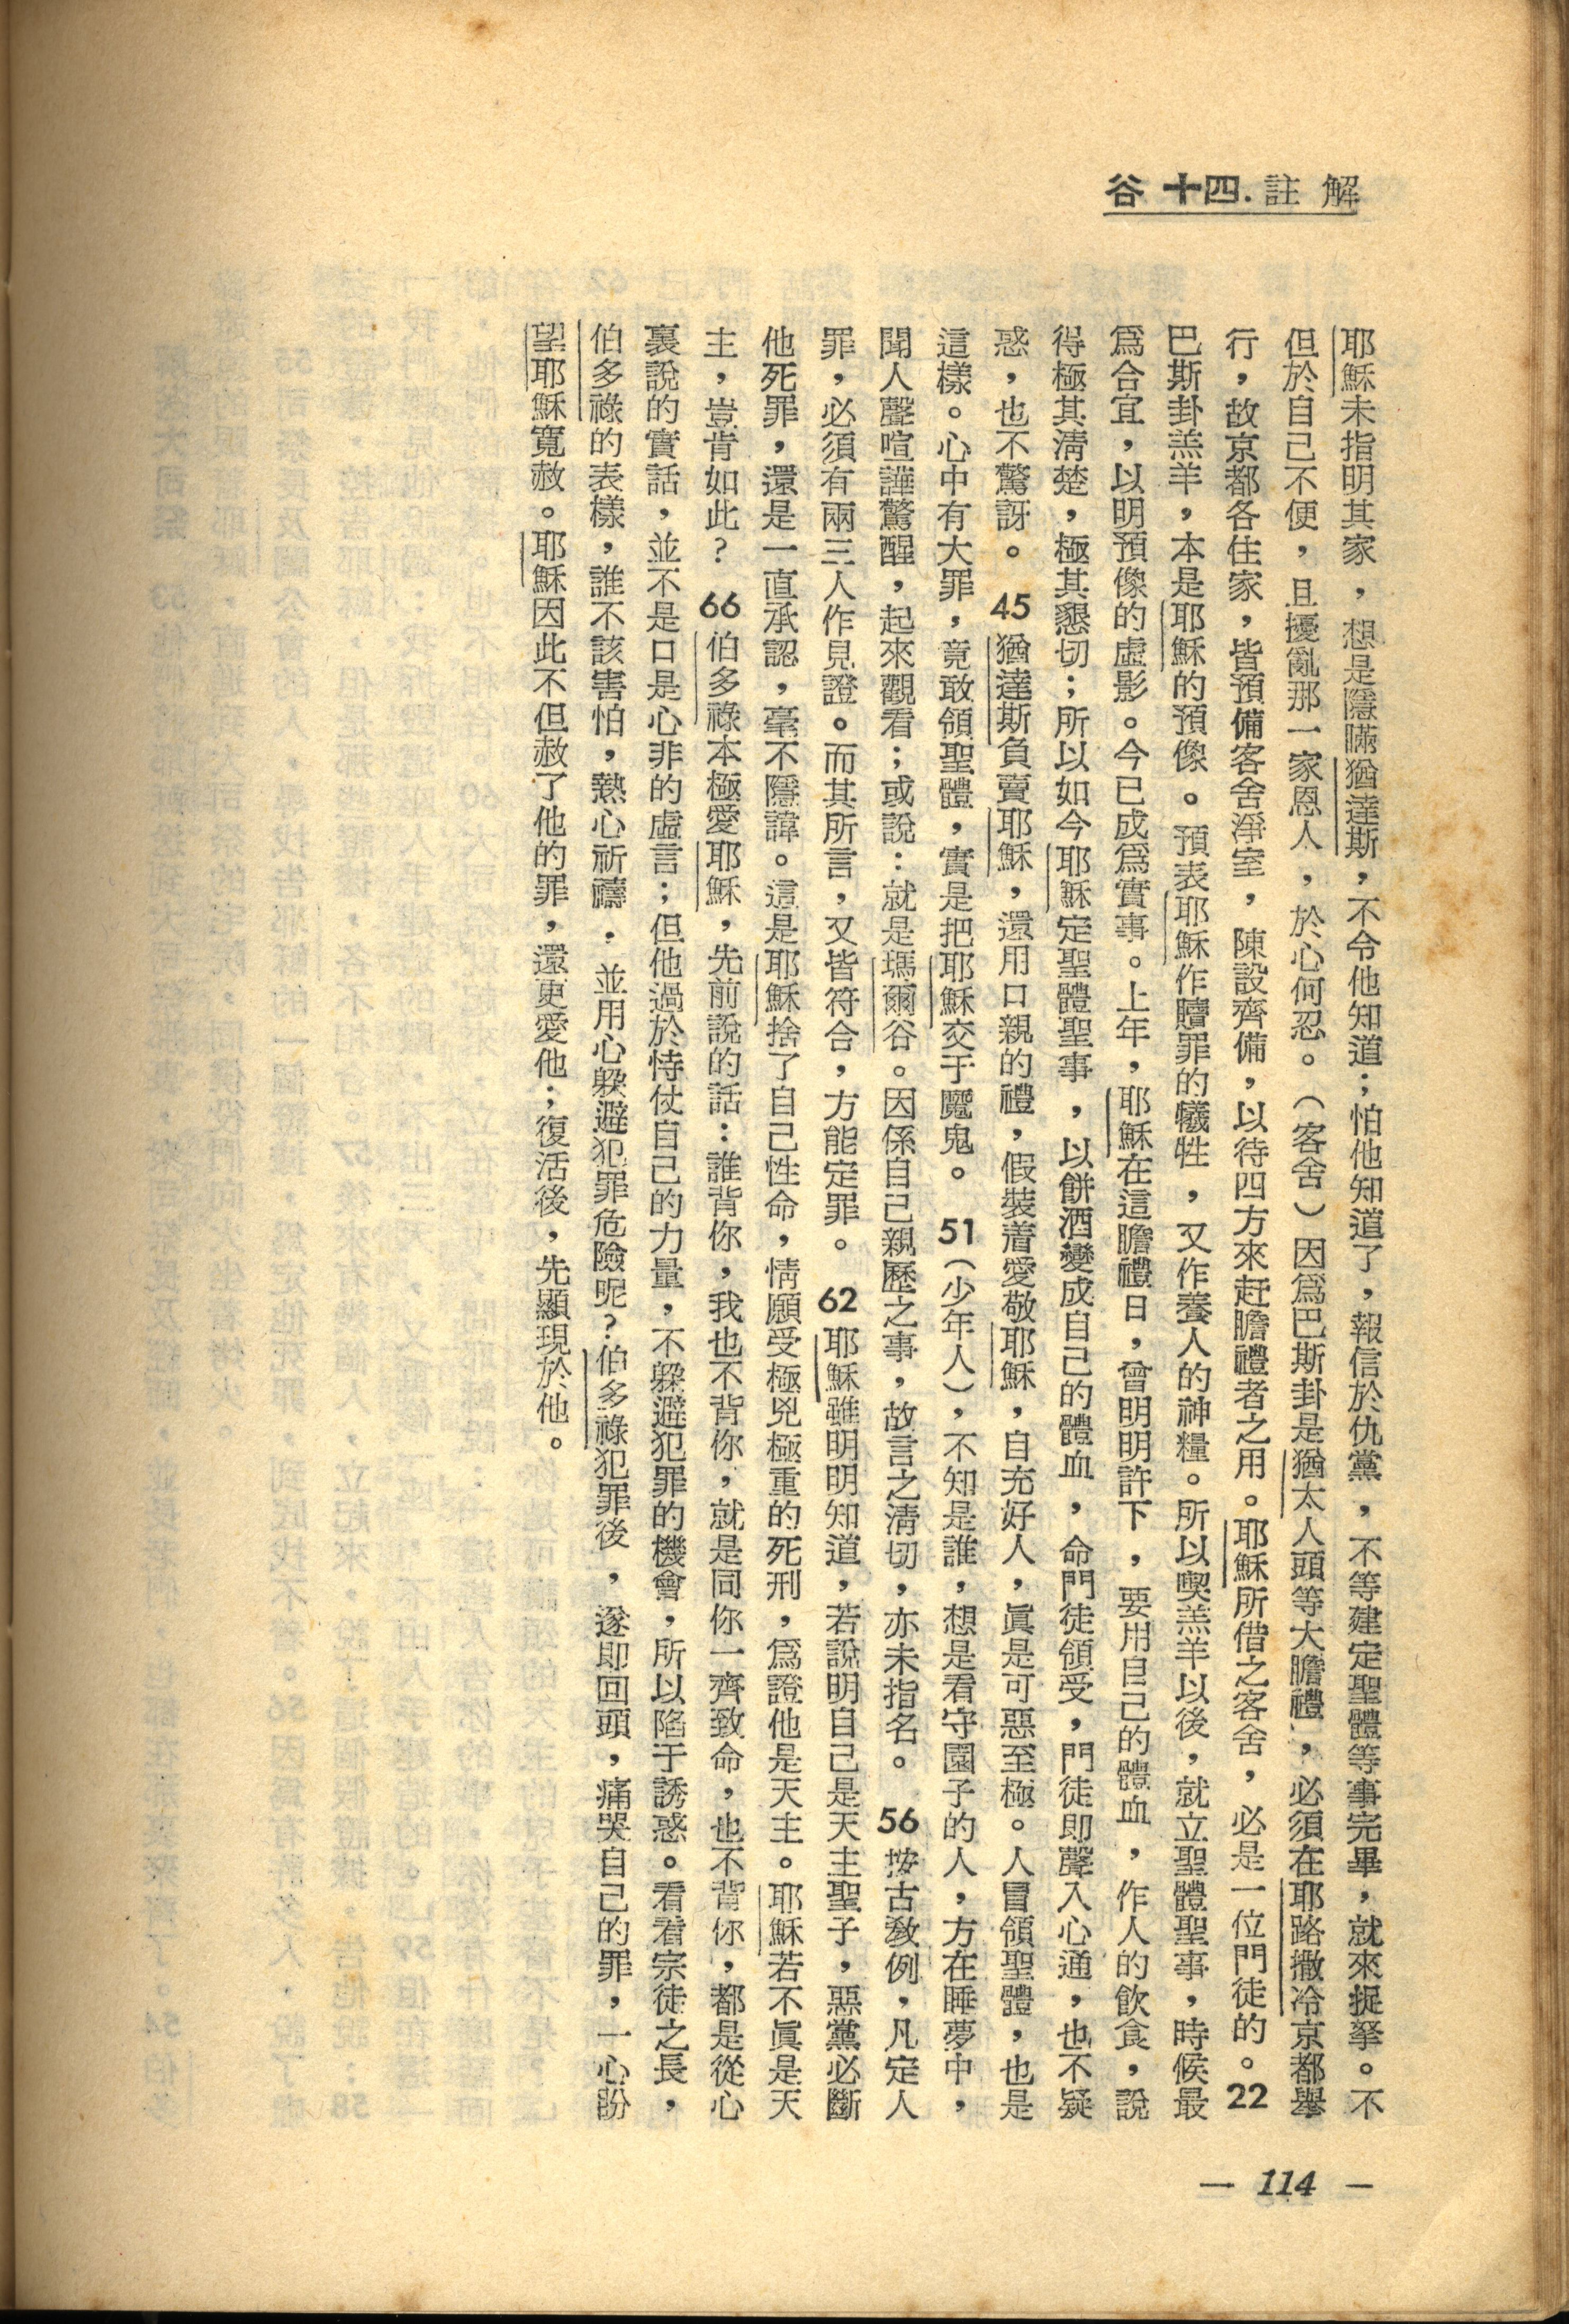 谷十四.註解
耶穌未指明其家，想是隱瞞猶達斯，不令他知道；怕他知道了，報信於仇黨，不等建定聖體等事完畢，就來捉拏。不
但於自己不便，且擾亂那一家恩人，於心何忍。（客舍）因爲巴斯卦是猶太人頭等大瞻禮，必須在耶路撒冷京都舉
行，故京都各住家，皆預備客舍淨室，陳設齊備，以待四方來赶瞻禮者之用。耶穌所借之客舍，必是一位門徒的。22
巴斯卦羔羊，本是耶穌的預像。預表耶穌作贖罪的犧牲，又作養人的神糧。所以喫羔羊以後，就立聖體聖事，時候最
爲合宜，以明預像的虛影。今已成爲實事。上年，耶穌在這瞻禮日，曾明明許下，要用自己的體血，作人的飲食，說
得極其清楚，極其懇切；所以如今耶穌定聖體聖事，以餅酒變成自己的體血，命門徒領受，門徒即聲入心通，也不疑
惑，也不驚訝。45猶達斯負賣耶穌，還用口親的禮，假裝着愛敬耶穌，自充好人，眞是可惡至極。人冒領聖體，也是
這樣。心中有大罪，竟敢領聖體，實是把耶穌交于魔鬼。51（少年人），不知是誰，想是看守園子的人，方在睡夢中，
聞人聲喧譁驚醒，起來觀看；或說：就是瑪爾谷。因係自己親歷之事，故言之清切，亦未指名。56按古敎例，凡定人
罪，必須有兩三人作見證。而其所言，又皆符合，方能定罪。62耶穌雖明明知道，若說明自己是天主聖子，惡黨必斷
他死罪，還是一直承認，毫不隱諱。這是耶穌捨了自己性命，情願受極兇極重的死刑，爲證他是天主。耶穌若不眞是天
主，豈肯如此？66伯多祿本極愛耶穌，先前說的話：誰背你，我也不背你，就是同你一齊致命，也不背你，都是從心
裏說的實話，並不是口是心非的虛言；但他過於恃仗自己的力量，不躱避犯罪的機會，所以陷于誘惑。看看宗徒之長，
伯多祿的表樣，誰不該害怕，熱心祈禱，並用心躱避犯罪危險呢？伯多祿犯罪後，遂即回頭，痛哭自己的罪，一心盼
望耶穌寬赦。耶穌因此不但赦了他的罪，還更愛他；復活後，先顯現於他。
— 114 —